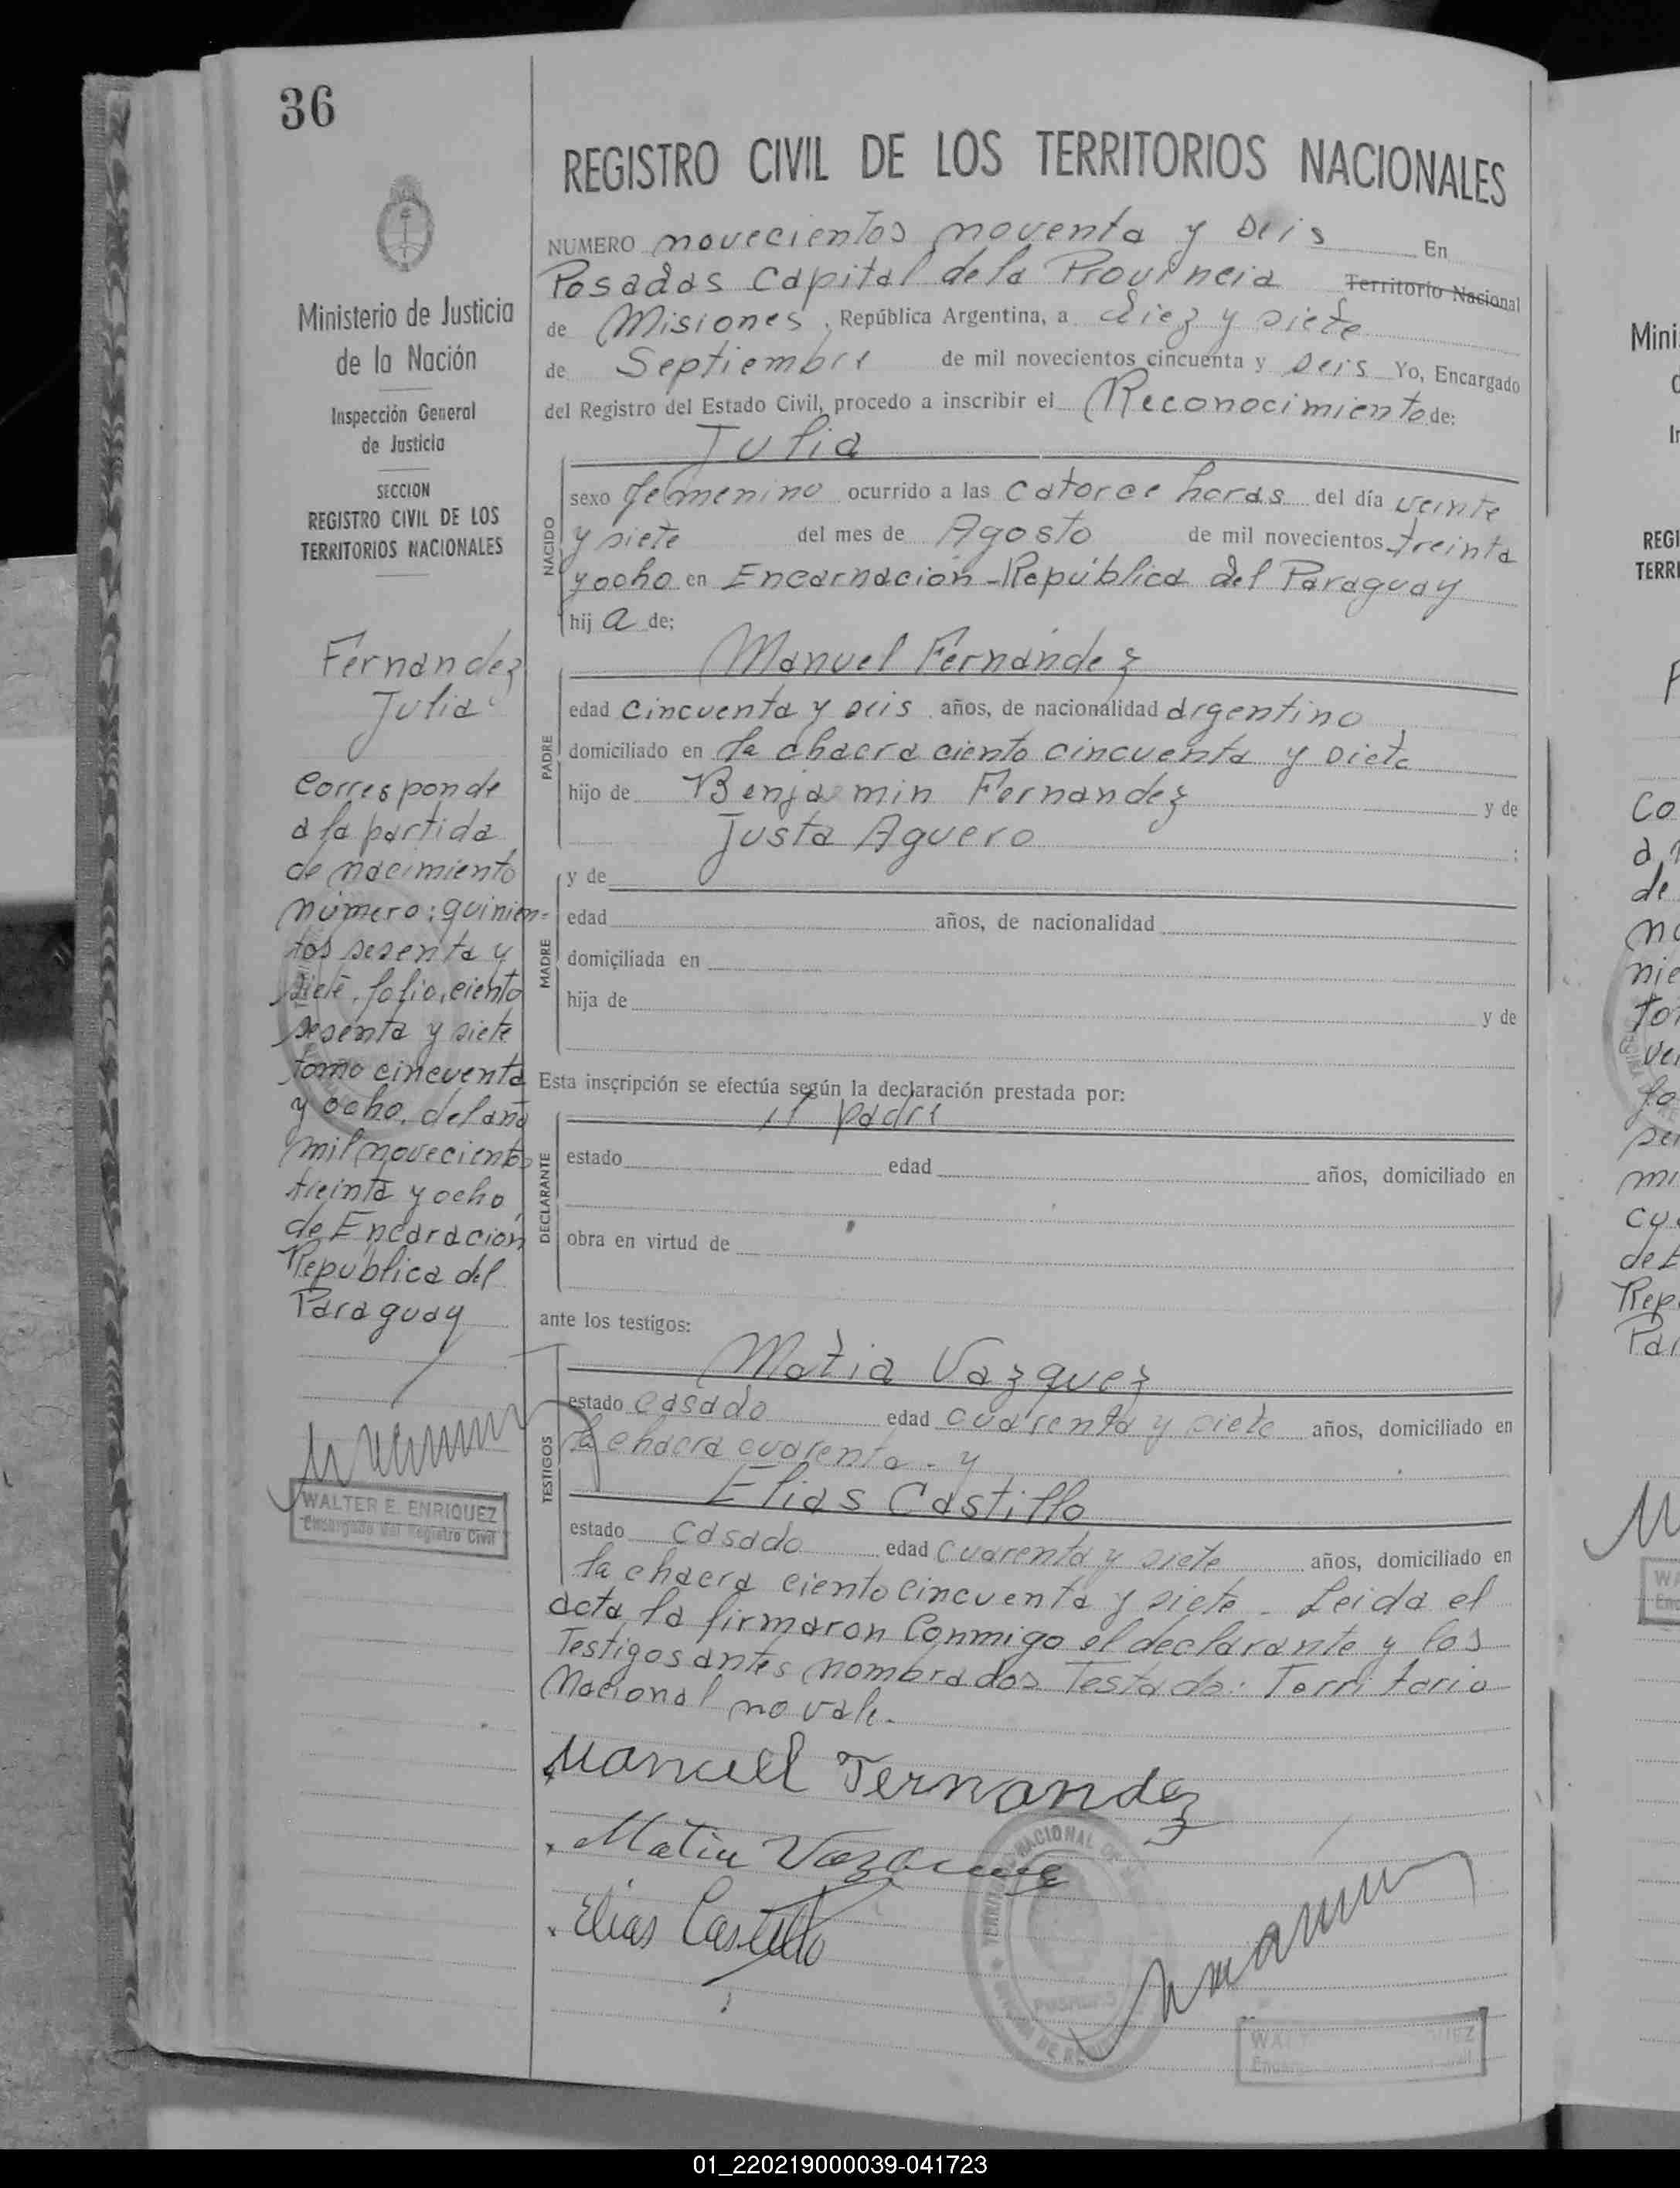 36
Ministerio de Justicia
de la Nación
Inspección General
de Justicia
SECCION
REGISTRO CIVIL DE LOS
TERRITORIOS NACIONALES
Fernandez
Julia
Corresponde
a la partida
de nacimiento
número: quinien=
tos sesenta y
siete, folio, ciento
sesenta y siete
tomo cincuenta
y ocho, del año
mil novecientos
treinta y ocho,
de Encaración
República del
Paraguay
WALTER E. ENRIQUEZ
Encargado del Registro Civil
REGISTRO CIVIL DE LOS TERRITORIOS NACIONALES
NUMERO novecientos noventa y seis En
Posadas Capital de la Provincia Territorio Nacional
de Misiones, República Argentina, a diez y siete
de Septiembre de mil novecientos cincuenta y seis Yo, Encargado
del Registro del Estado Civil, procedo a inscribir el Reconocimiento de:
Julia
NACIDO
sexo femenino ocurrido a las catorce horas del día veinte
y siete del mes de Agosto de mil novecientos treinta
y ocho en Encarnación - República del Paraguay
hij a de:
Manuel Fernández
PADRE
edad cincuenta y seis años, de nacionalidad argentino
domiciliado en la chacra ciento cincuenta y siete
hijo de Benjamin Fernandez y de
Justa Aguero :
MADRE
y de
edad años, de nacionalidad
domiciliada en
hija de y de
Esta inscripción se efectúa según la declaración prestada por:
el padre
DECLARANTE
estado edad años, domiciliado en
obra en virtud de
ante los testigos:
Matia Vazquez
TESTIGOS
estado casado edad cuarenta y siete años, domiciliado en
la chacra cuarenta - y
Elias Castillo
estado casado edad cuarenta y siete años, domiciliado en
la chacra ciento cincuenta y siete - Leida el
acta la firmaron Conmigo el declarante y los
Testigos antes nombrados Testado: Territorio
Nacional no vale.
Manuel Fernandez
Matia Vazquez
Elias Castillo
TERRITORIO NACIONAL DE
POSADAS
WAL UEZ
Encar
Mini
REGI
TERRI
Co
de
Rep
01_220219000039-041723